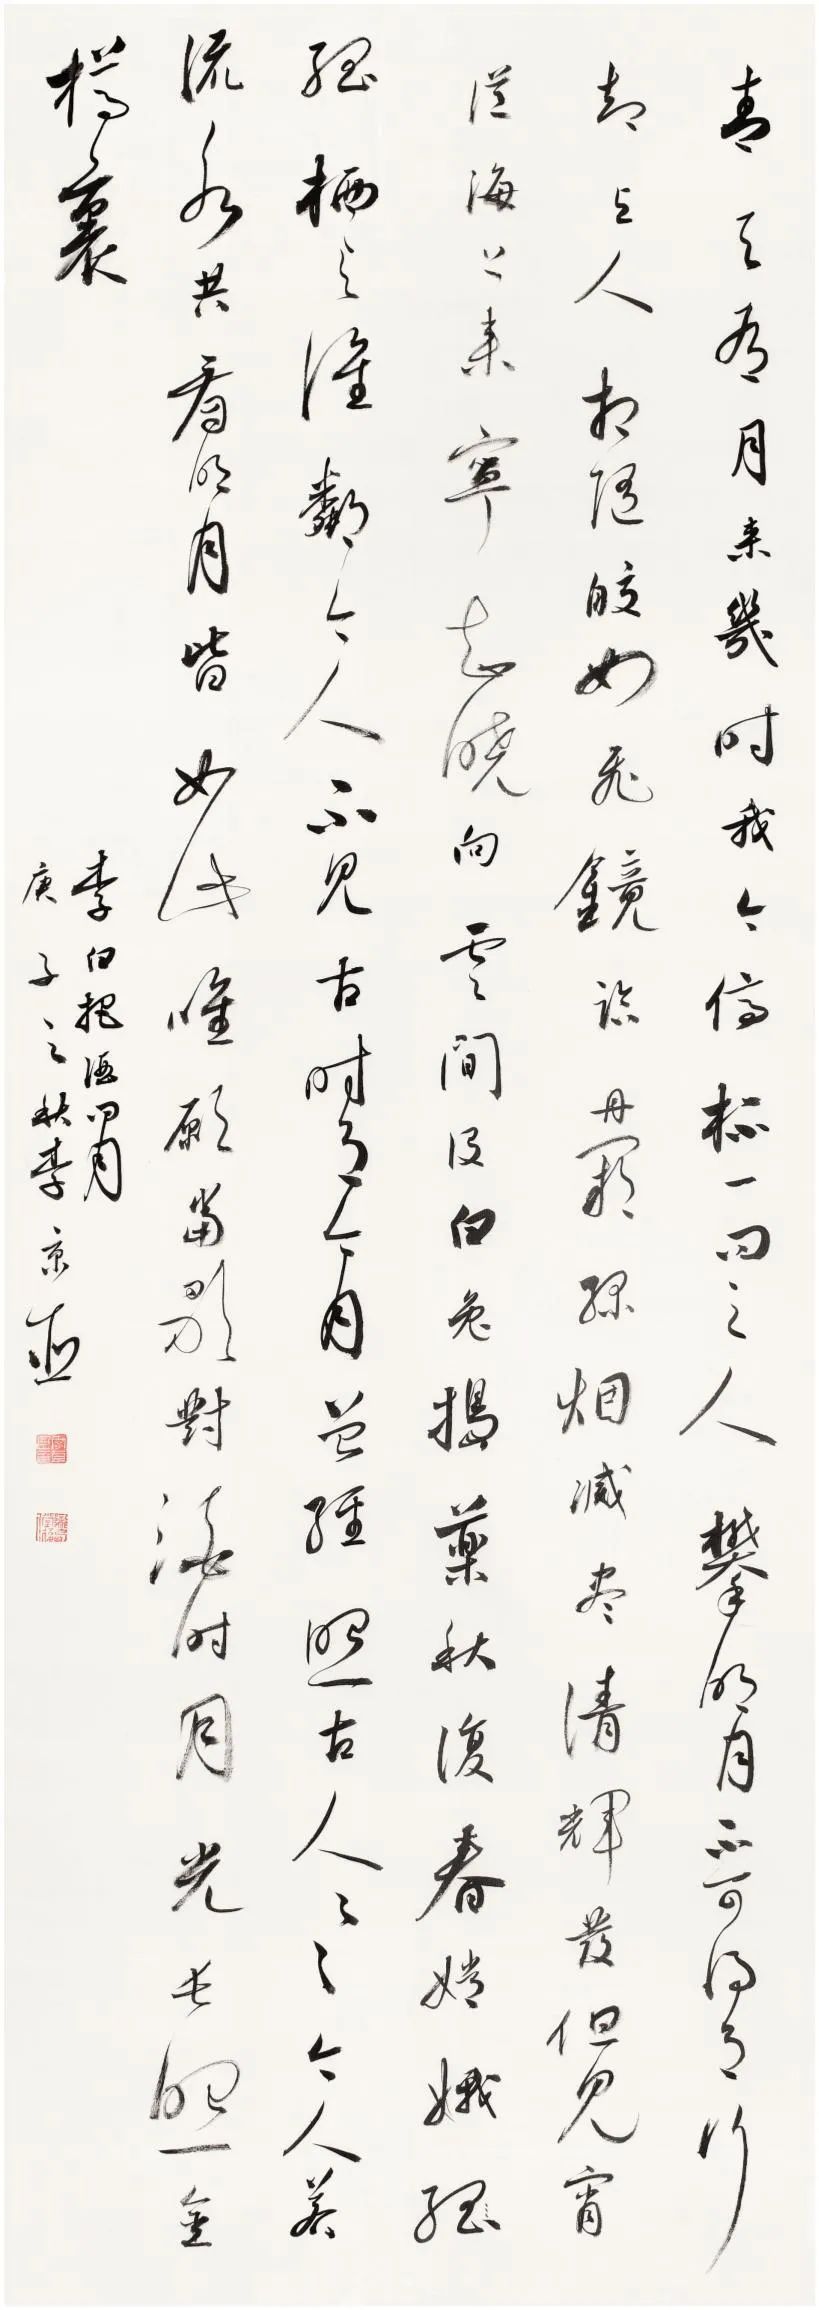 青天有月来幾时我今停杯一问之人攀明月不可得月行
却与人相随皎如飞鏡临丹阙绿烟减尽清輝发但见宵
從海上来寧知晓向雲间没白兔搗藥秋復春嫦娥孤
孤栖与谁鄰今人不见古时月今月曾经照古人〻〻今人若
流水共看明月皆如此唯願當歌對酒时月光长照金
樽裏
李白把酒问月
庚子之秋李京